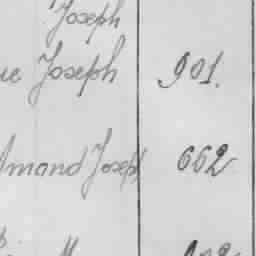 Joseph
ie Joseph 901.
Amand Joseph 662